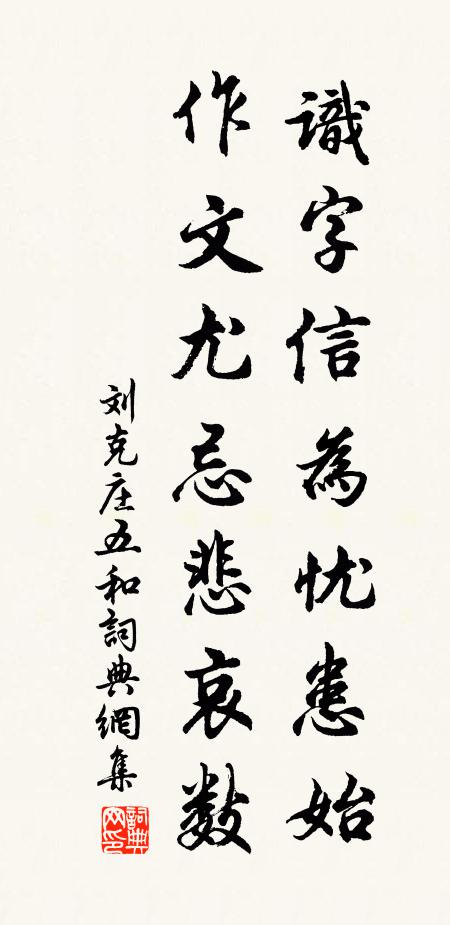 識字信為忧患始
作文尤忌悲哀数
刘克庄五和詞典網集
詞典网印